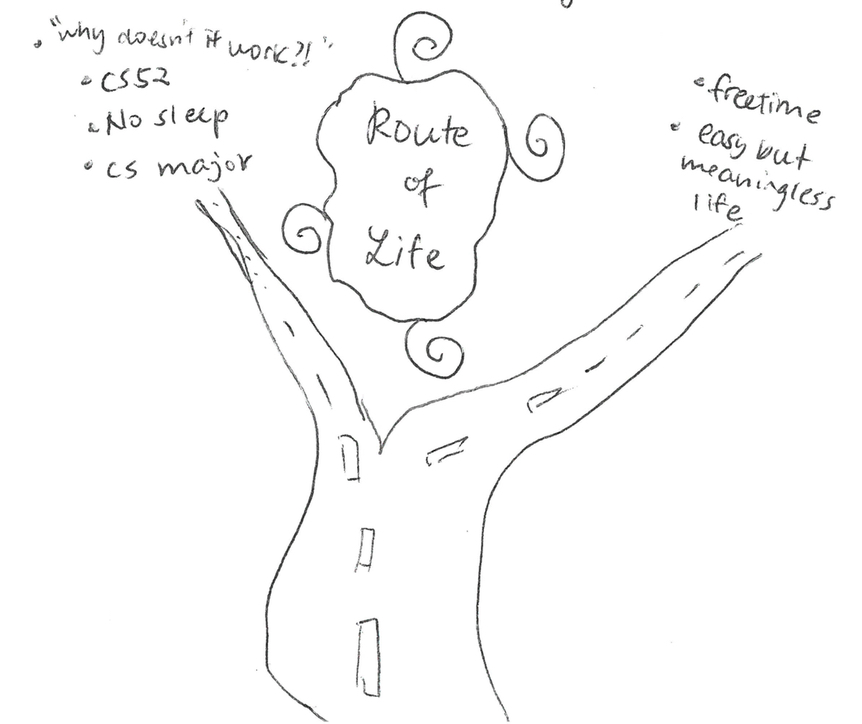 • "why doesn't it work?!"
• CS52
• No sleep
• cs major
Route
of
Life
• freetime
• easy but
meaningless
life